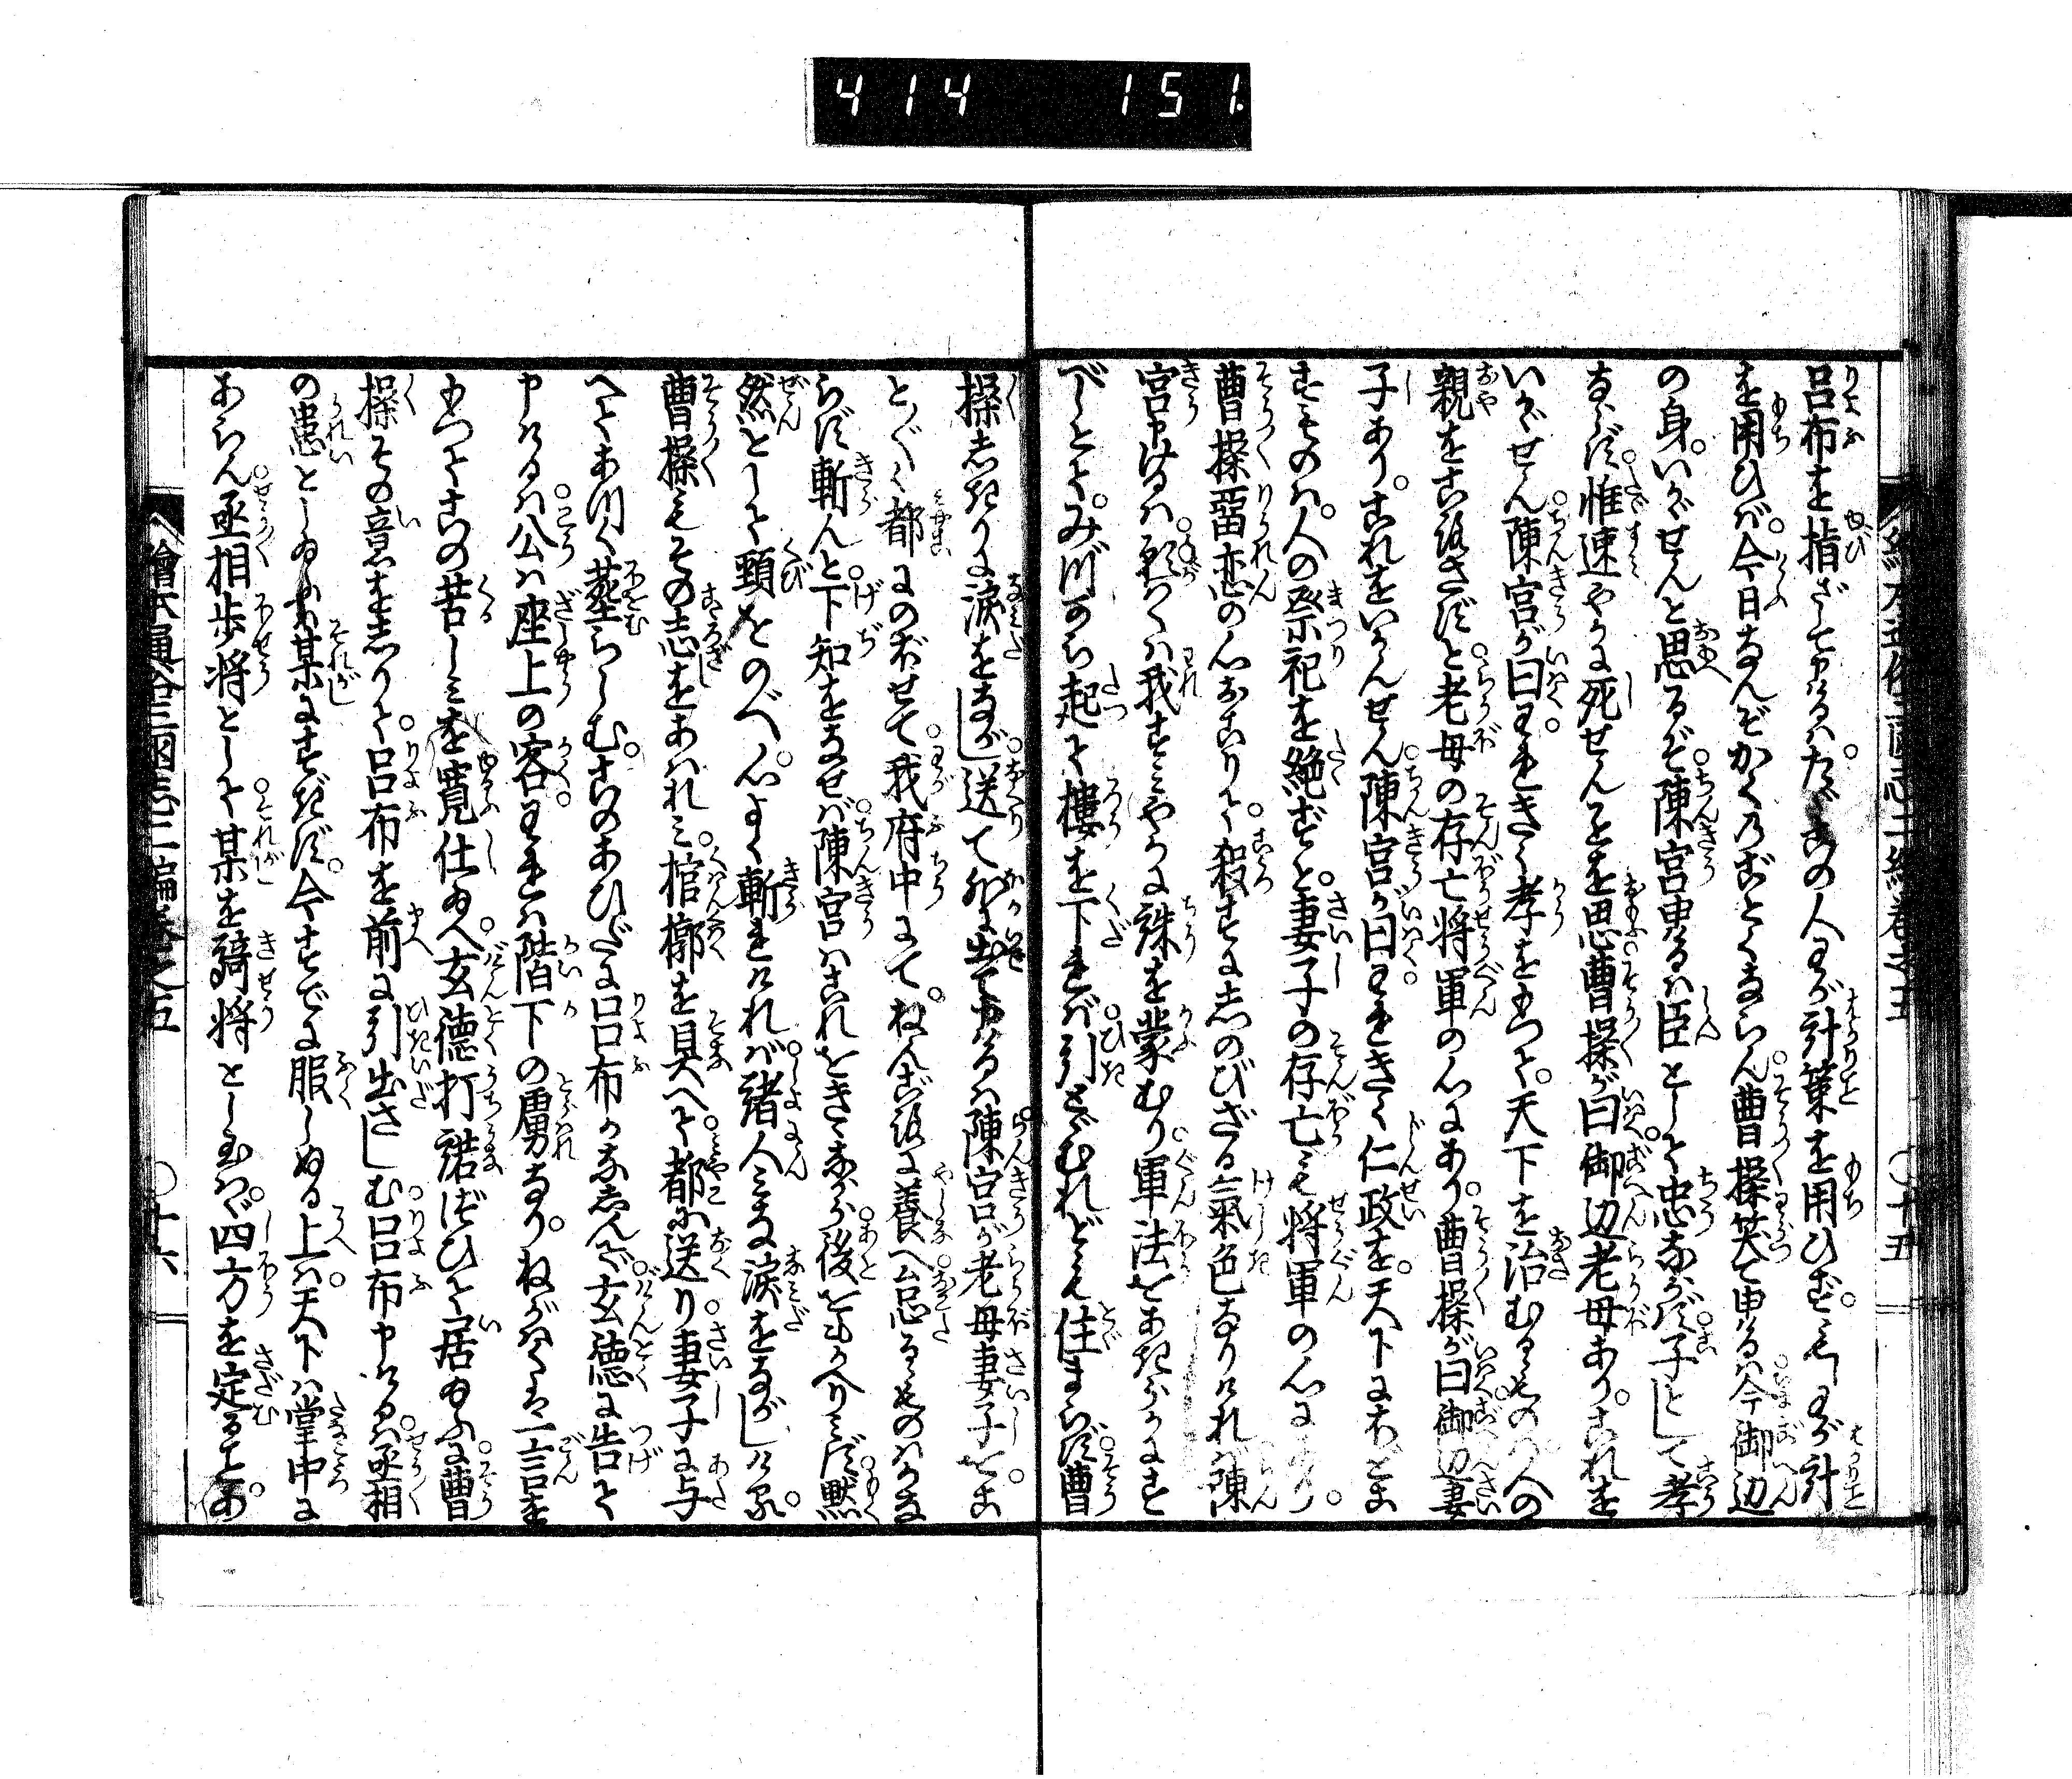 414 151
呂布を指ざして申けるハ。たゞこの人わが計策を用ひず。もしわが計
を用ひバ。今日なんぞかくのごとくならん。曹操笑て申けるハ。今御辺
の身。いかゞせんと思るぞ。陳宮申けるハ。臣として忠ならず。子として孝
ならず。惟速やかに死せんことを思。曹操が曰。御辺老母あり。これを
いかゞせん。陳宮が曰。われきく孝をもつて。天下を治むるものハ人の
親をころさずと。老母の存亡将軍の心にあり。曹操が曰。御辺妻
子あり。これをいかんせん。陳宮が曰。われきく仁政を。天下にほどこ
すものハ。人の祭祀を絶ずと。妻子の存亡も。将軍の心にあり。
曹操畱恋の心おこりて。殺すにしのびざる氣色なりけれバ。陳
宮申けるハ。願くハ我すミやかに誅を蒙むり。軍法をあきらかにす
べしとて。みづから起て樓を下れバ。引とゞむれども住まらず。曹
操しきりに涙をながし。送て外に出て申けるハ。陳宮が老母妻子をこ
と〴〵く都にのぼせて。我府中にて。ねんごろに養へ。怠るものハかな
らず斬んと。下知をなせバ。陳宮ハこれをきゝながら。後をもかへりミず。黙
然として頸をのべ。心よく斬られけれバ。諸人ミな涙をながしける。
曹操もその志をあハれミ。棺槨を具へて。都に送り。妻子に与
へてあつく葬らしむ。このあひだに呂布かなしんで。玄徳に告て
申けるハ。公ハ座上の客。われハ階下の虜なり。ねがハくハ一言を
もつてこの苦しミを寛仕め。玄徳打諾づひて居ゐふに。曹
操その意をしりて。呂布を前に引出さしむ。呂布申けるハ。丞相
の患としゐふハ。某にすぎず。今すでに服しぬる上ハ。天下ハ掌中に
あらん。丞相歩将として。某を騎将としゐハゞ。四方を定ること。あ
繪本通俗三國志二編巻之五
〇十五
〇十六